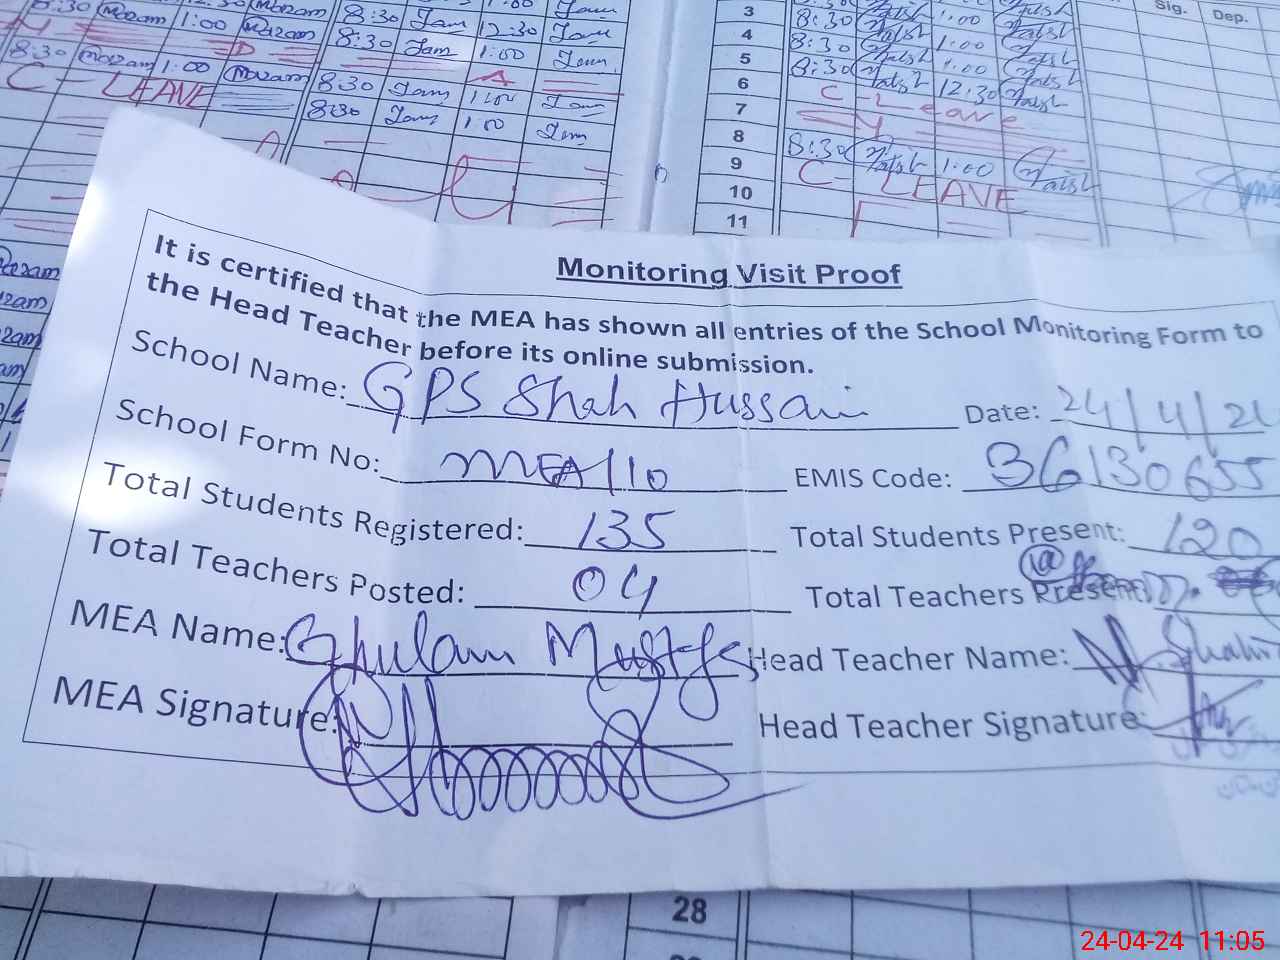 8:30 Mozam 1:00 Mozam 8:30 Jam 12:30 Jam
8:30 Jam 1:00 Jam
8:30 Mozam 1:00 Mozam
C - LEAVE A
8:30 Jam 1:00 Jam
8:30 Jam 1:00 Jam
Sig. Dep.
3 8:30 1:00
4 8:30 1:00
5 8:30 12:30
6 C - Leave
7
8 8:30 1:00
9 C - LEAVE
10
11
Monitoring Visit Proof
It is certified that the MEA has shown all entries of the School Monitoring Form to
the Head Teacher before its online submission.
School Name: GPS Shah Hussain Date: 24/4/24
School Form No: MEA/10 EMIS Code: 36130655
Total Students Registered: 135 Total Students Present: 120
Total Teachers Posted: 04 Total Teachers Present:
MEA Name: Ghulam Mustafa Head Teacher Name:
MEA Signature: Head Teacher Signature:
28
24-04-24 11:05